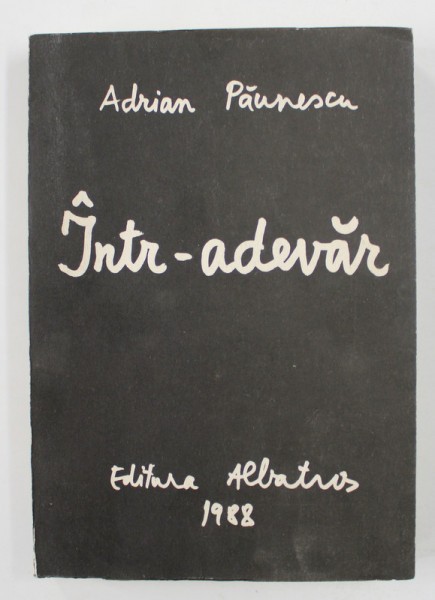 Adrian Păunescu
Într-adevăr
Editura Albatros
1988